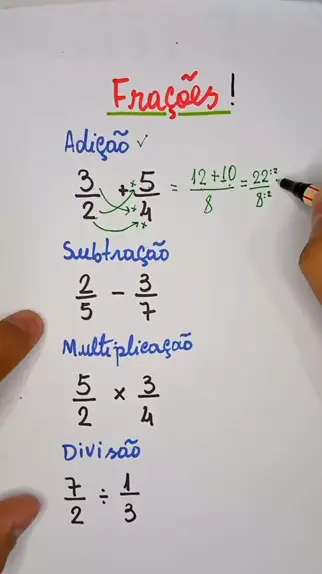 Frações!
Adição ✓
3/2 + 5/4 = 12+10/8 = 22:2/8:2
Subtração
2/5 - 3/7
Multiplicação
5/2 × 3/4
Divisão
7/2 ÷ 1/3